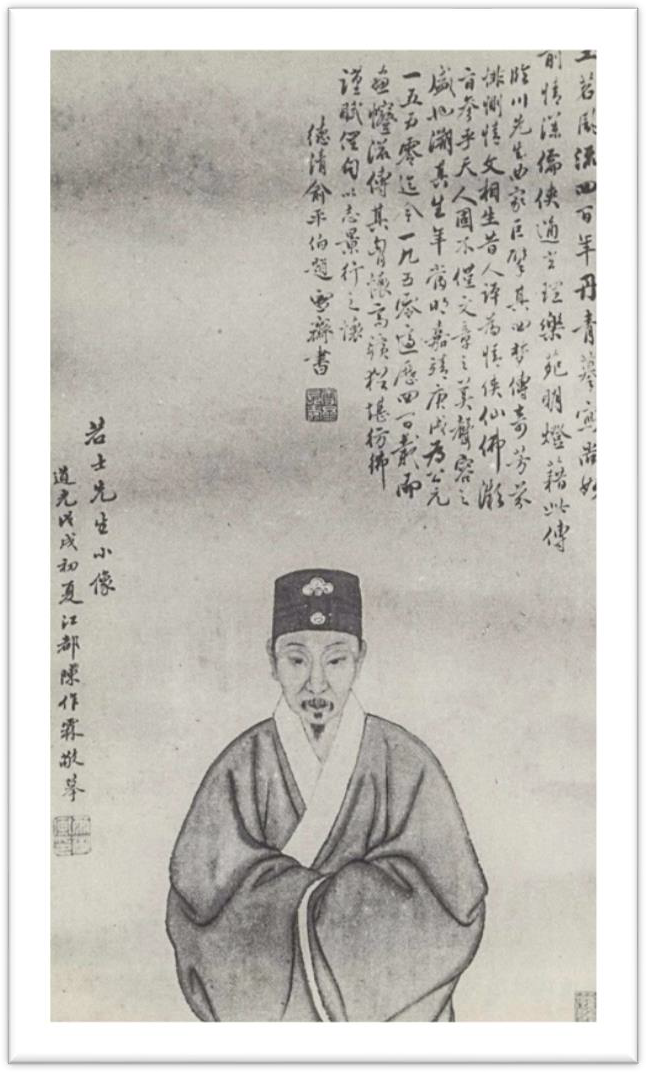 茗風流四百年丹青摹寫尚
前情深儒俠通玄理樂苑明燈藉此傳
臨川先生曲家巨擘其四夢傳奇芳芬
悱惻情文相生昔人評為情俠仙佛
參乎天人固不僅文章之美聲容之
盛也溯其生年當明嘉靖庚戌為公元
一五五零迄今一九五零適歷四百載而
傳其胸懷高猶堪彷彿
謹賦俚句以志景行之懷
德清俞平伯題雪齋書
若士先生小像
道光戊戌初夏江都陳作霖敬摹